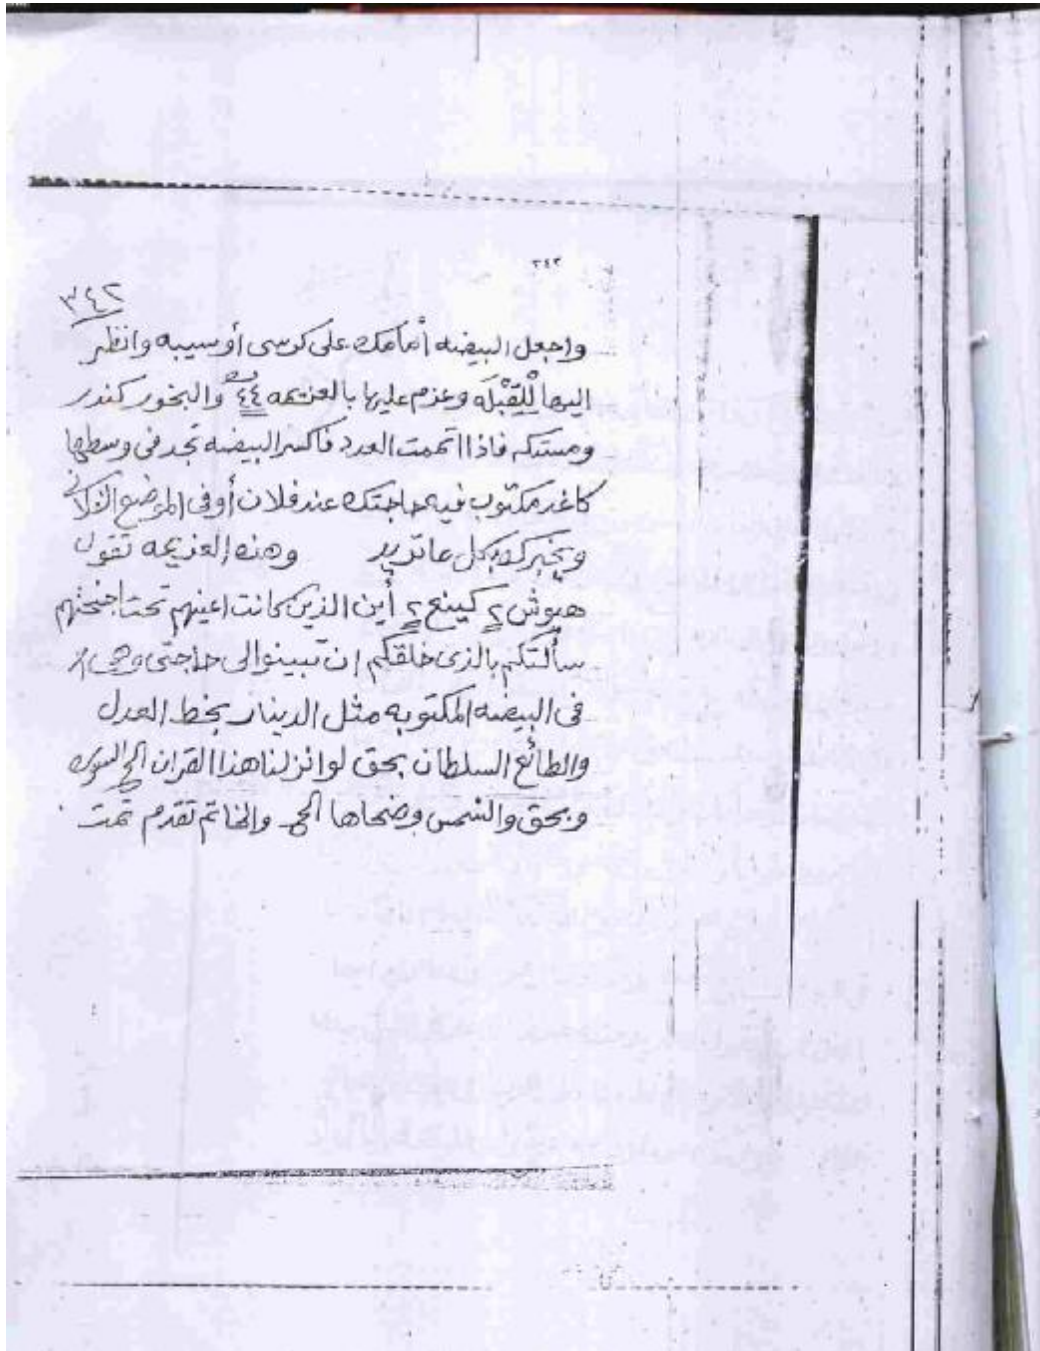 ٢٤٢
٣٤٢
واجعل البيضه أمامك على كرسى أو سيبه وانظر
اليها لِلْقِبْلَه وعزم عليها بالعزيمه ٤٤ والبخور كندر
ومستكه فاذا اتممت العدد فاكسر البيضه تجد فى وسطها
كاغد مكتوب فيه حاجتك عند فلان أو فى الموضع الفلانى
ويخبرك بكل ما تريد وهذه العزيمه تقول
هيوش ٢ كينع ٢ أين الذين كانت اعينهم تحت اجنحتهم
سألتكم بالذى خلقكم ان تبينوا لى حاجتى وهى
فى البيضه المكتوبه مثل الدينار بخط العدل
والطائع السلطان بحق لو انزلنا هذا القران الخ السوره
وبحق والشمس وضحاها الخ والخاتم تقدم تمت